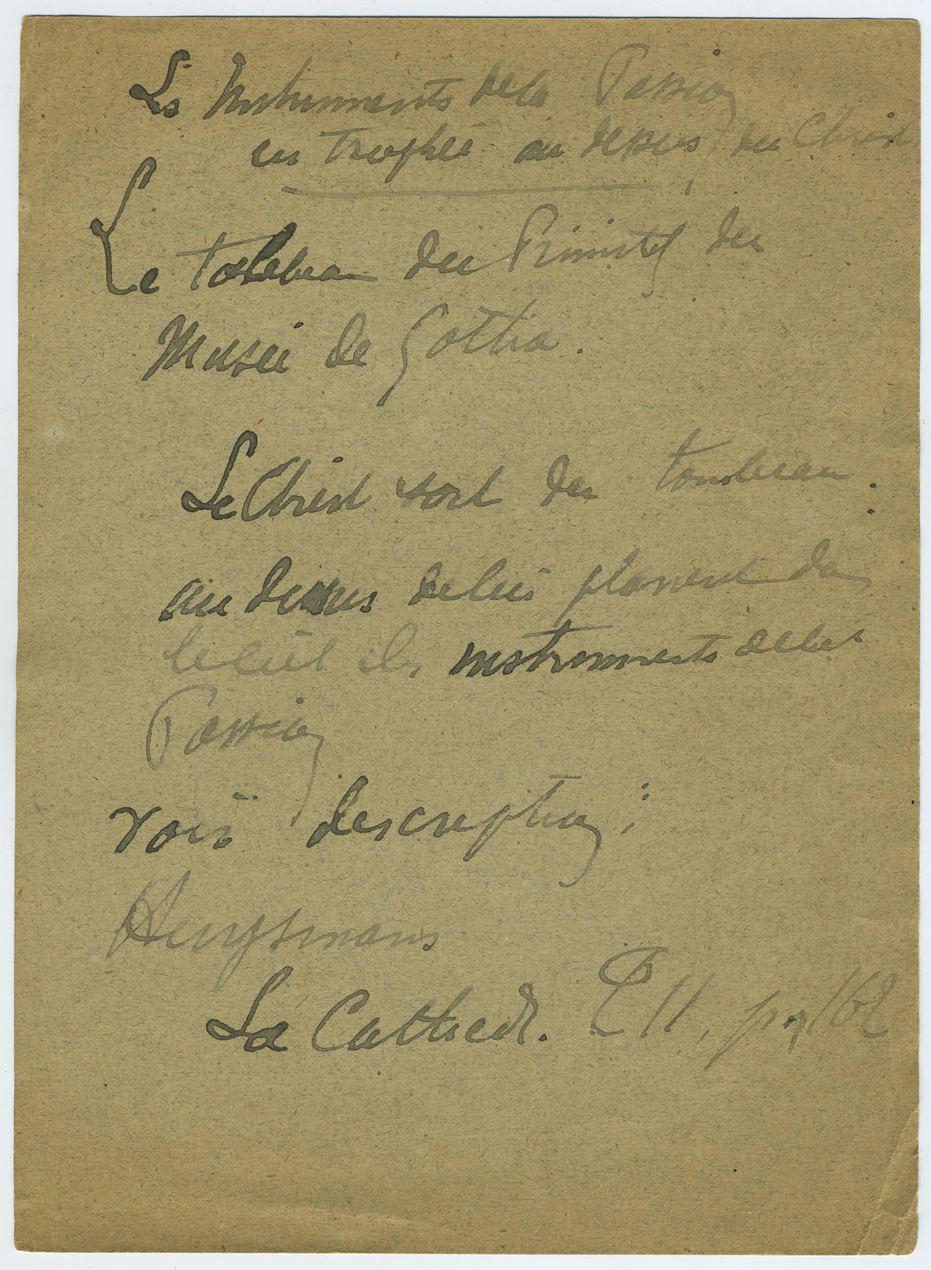 Les Instruments de la Passion
en trophée au dessus du Christ
Le tableau du Primitif du
Musée de Gotha.
Le Christ sort du tombeau.
au dessus de lui planent dans
le ciel les instruments de la
Passion
voir description ;
Huysmans
La Cathed. T II, pg 162